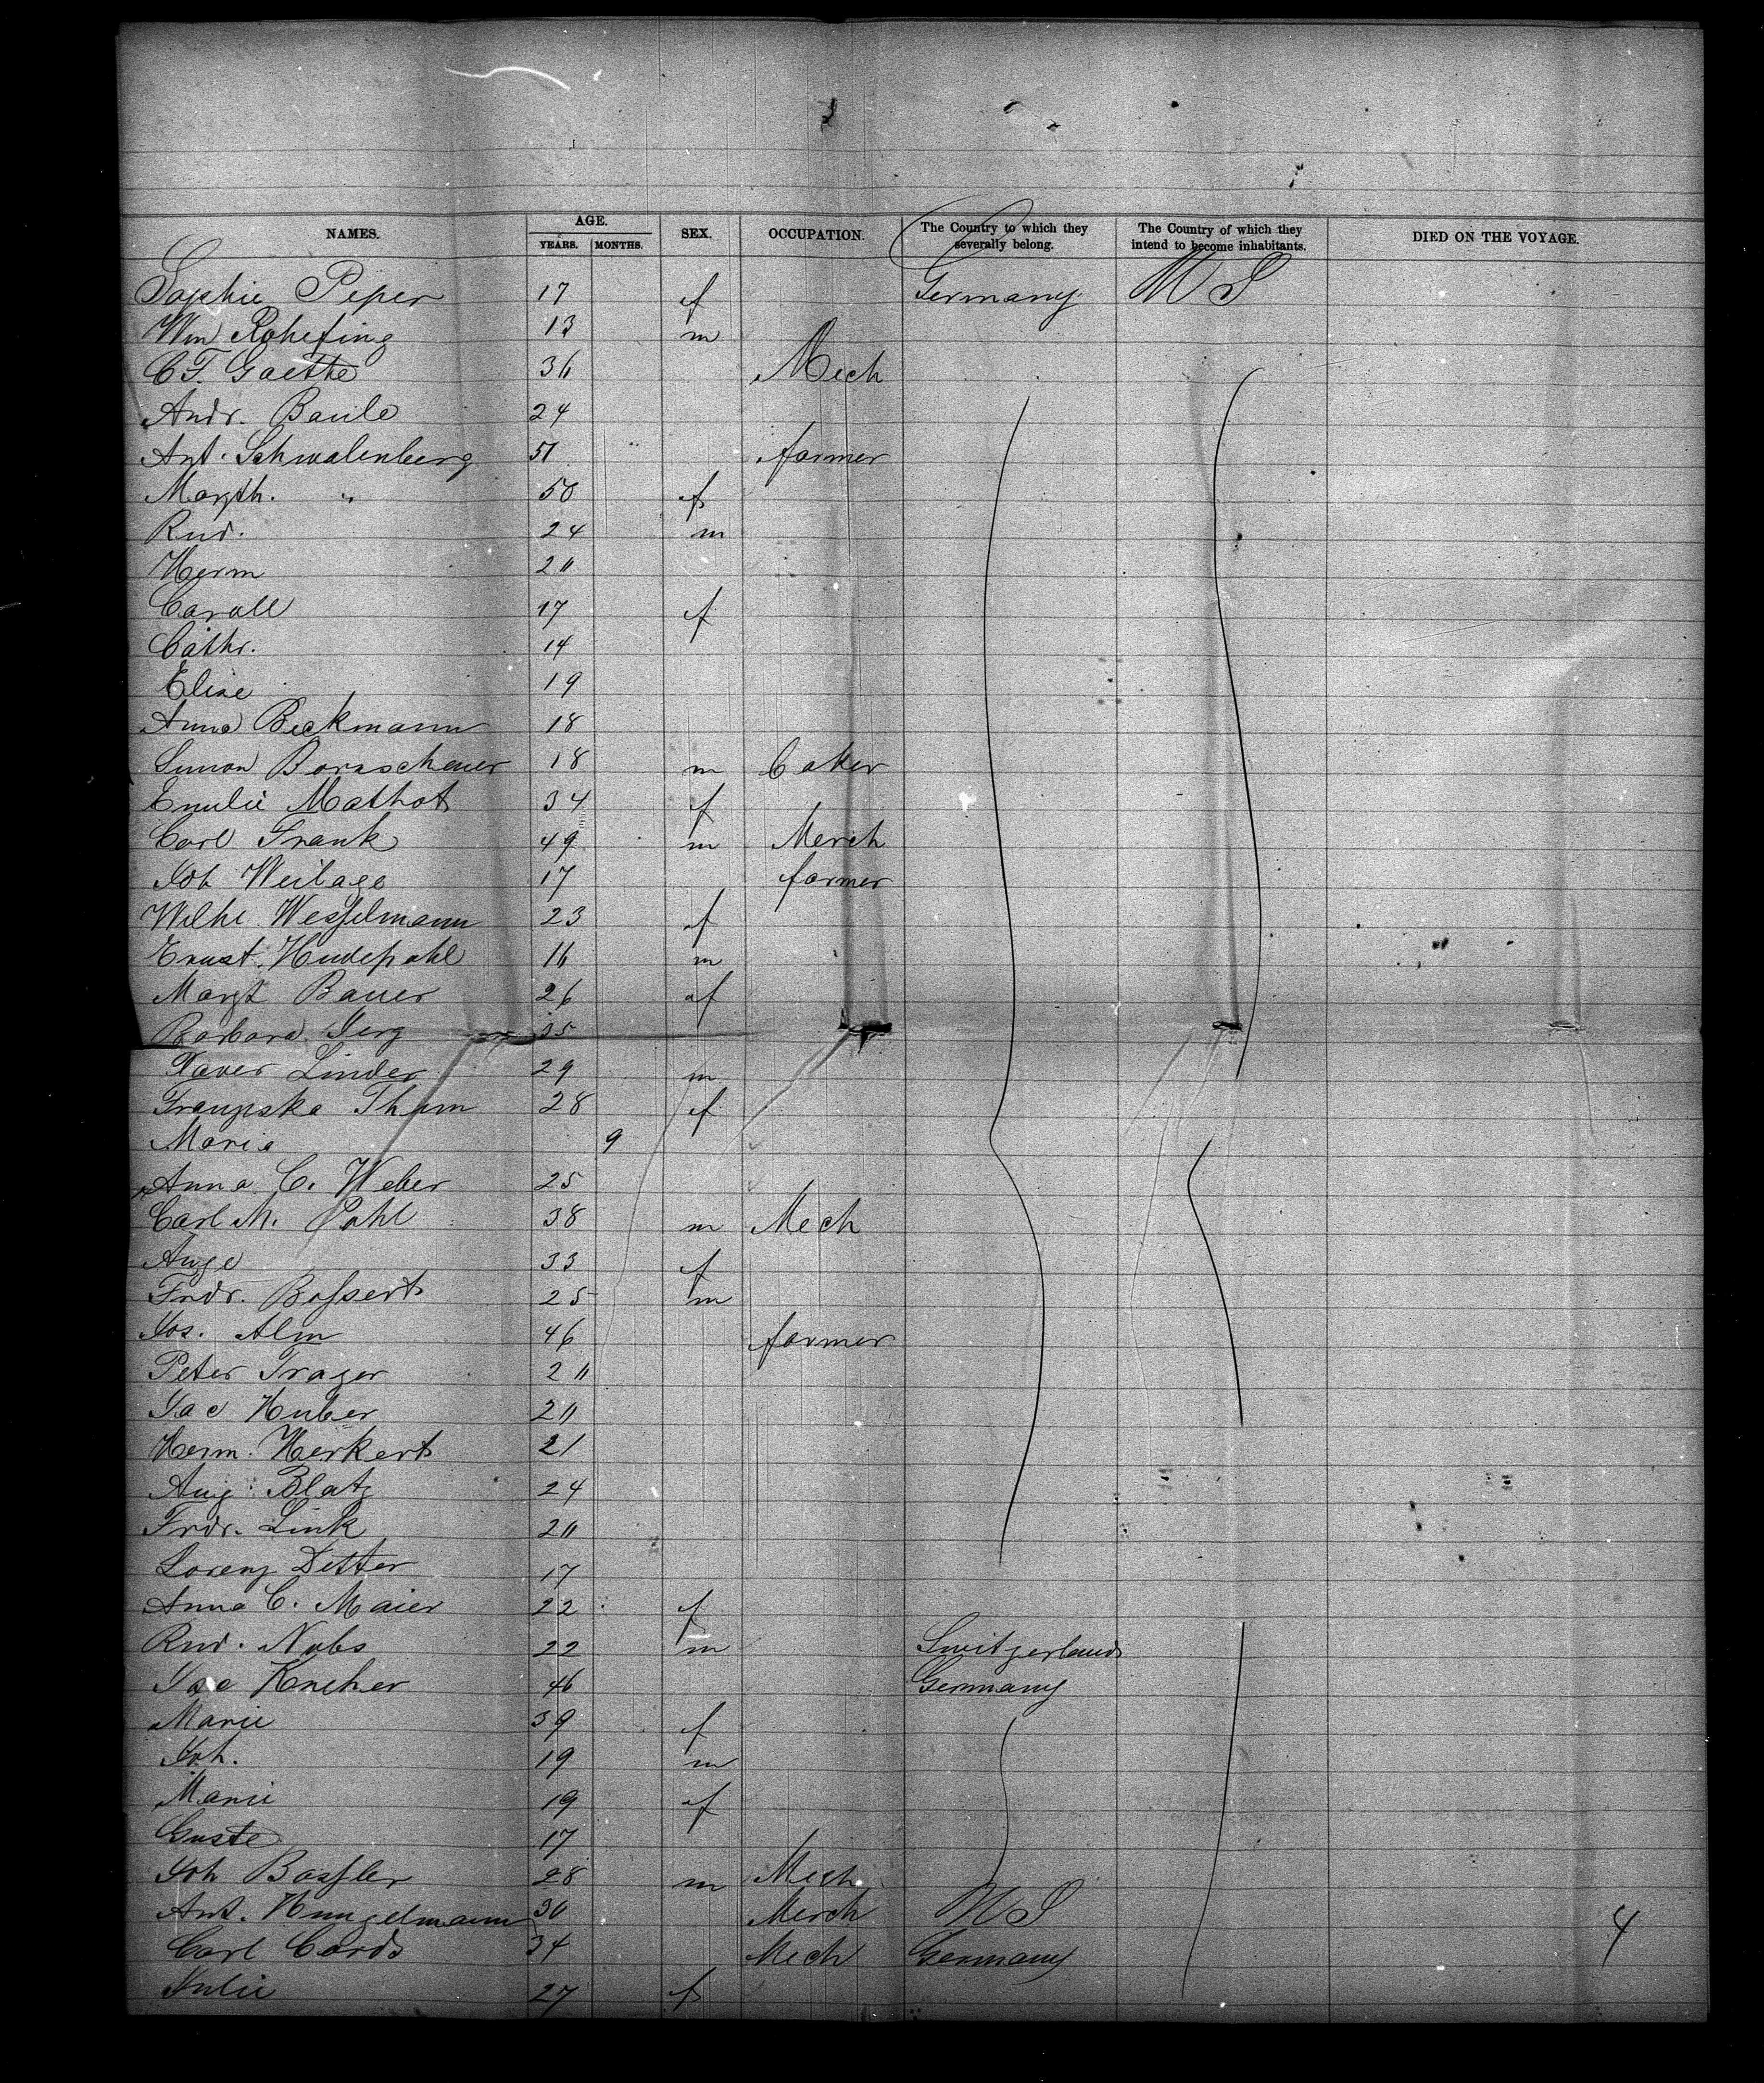 NAMES. AGE. YEARS. MONTHS. SEX. OCCUPATION. The Country to which they severally belong. The Country of which they intend to become inhabitants. DIED ON THE VOYAGE.
Sophie Peper 17 f Germany U S
Wm 13 m
C F. Goethe 36 Mech
Andr. Baule 24
Ant. Schwalenberg 51 farmer
Margth. " 50 f
Rud. 24 m
Herm 20
Caroll 17 f
Cathr. 14
Elise 19
Anna Beckmann 18
Simon Bornscheuer 18 m baker
Emilie Mathot 34 f
Carl Frank 49 m Merch
Joh Weilage 17 farmer
Wilhe Wesselmann 23 f
Ernst. Hudepohl 16 m
Margt Bauer 26 f
Barbara Jerg
Xaver Linder 29 m
Franziska Thum 28 f
Maria 9
Anna C. Weber 25
Carl M. Pohl 38 m Mech
Auge 33 f
Frdr. Bossert 25 m
Jos. Alm 46 farmer
Peter Trager 20
Jac Huber 20
Herm. Herkert 21
Aug. Blatz 24
Frdr. Link 20
Lorenz Detter 17
Anna C. Maier 22 f
Rud. Nobs 22 m Switzerland
Jac 46 Germany
Marie 39 f
Joh. 19 m
Marie 19 f
Guste 17
Joh Bossler 28 m Mech
Ant. Hungelmann 30 Merch U S
Carl Cords 34 Mech Germany
Julie 27 f
4